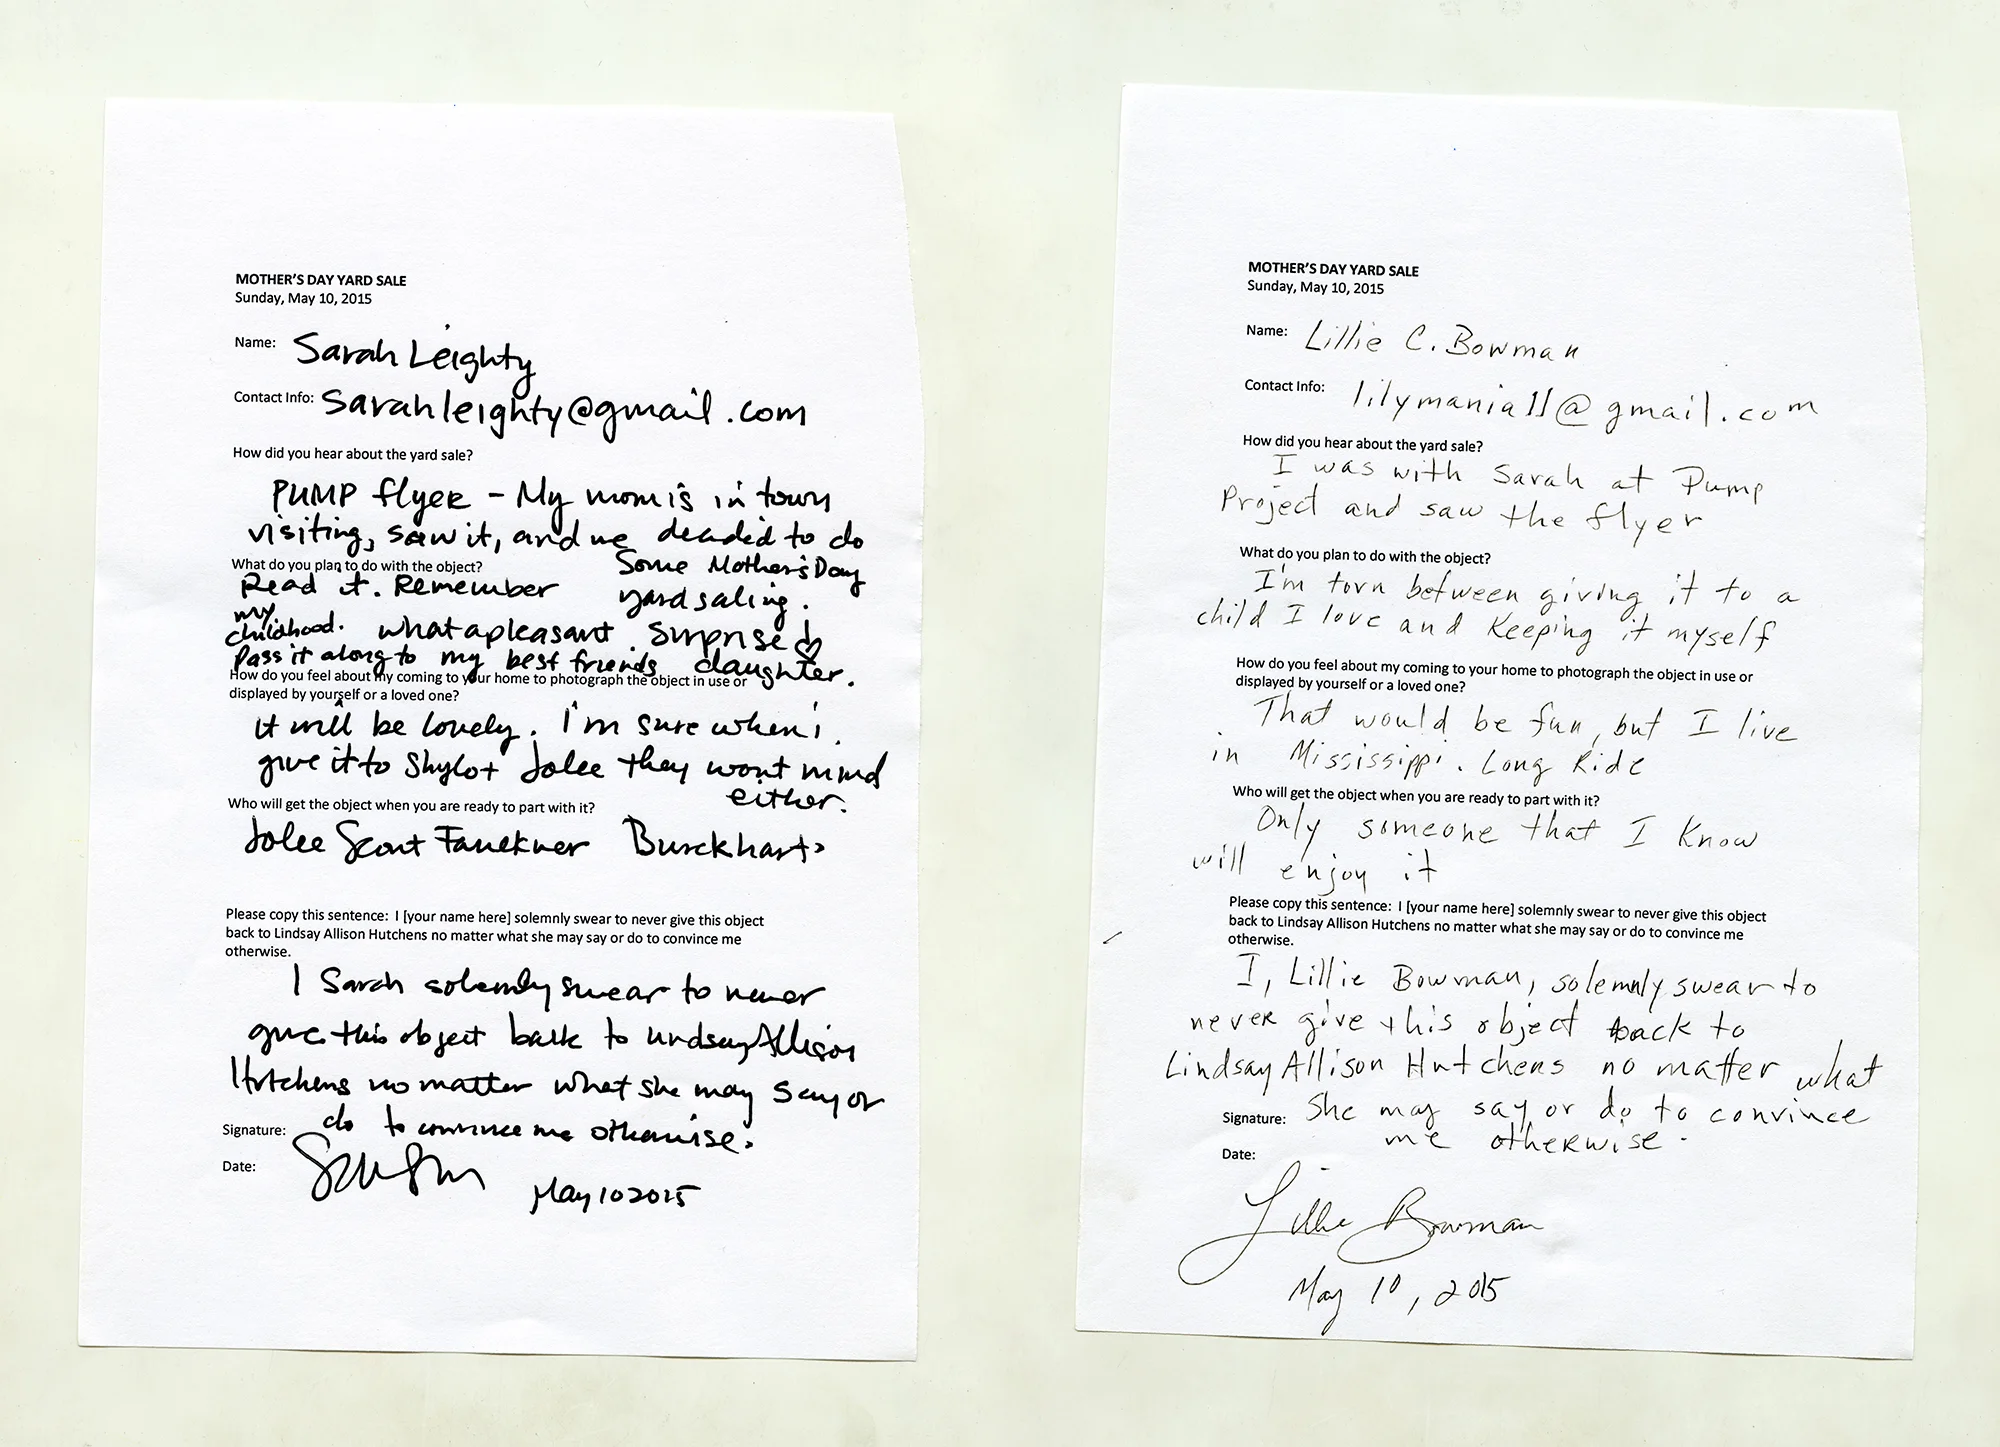 MOTHER'S DAY YARD SALE
Sunday, May 10, 2015
Name: Sarah Leighty
Contact Info: Sarahleighty@gmail.com
How did you hear about the yard sale?
PUMP flyer - My mom is in town
visiting, saw it, and we decided to do
Some Mother's Day
yard saling.
What do you plan to do with the object?
Read it. Remember
my
childhood. what a pleasant surprise!
Pass it along to my best friends daughter.
How do you feel about my coming to your home to photograph the object in use or
displayed by yourself or a loved one?
it will be lovely. I'm sure when i
give it to Shylo + Jolee they wont mind
either.
Who will get the object when you are ready to part with it?
Jolee Scout Faulkner Burckhart
Please copy this sentence: I [your name here] solemnly swear to never give this object
back to Lindsay Allison Hutchens no matter what she may say or do to convince me
otherwise.
I Sarah solemnly swear to never
give this object back to Lindsay Allison
Hutchens no matter what she may say or
do to convince me otherwise.
Signature:
Date:
May 10 2015
MOTHER'S DAY YARD SALE
Sunday, May 10, 2015
Name: Lillie C. Bowman
Contact Info: lilymania11@gmail.com
How did you hear about the yard sale?
I was with Sarah at Pump
Project and saw the flyer
What do you plan to do with the object?
I'm torn between giving it to a
child I love and keeping it myself
How do you feel about my coming to your home to photograph the object in use or
displayed by yourself or a loved one?
That would be fun, but I live
in Mississippi. Long Ride
Who will get the object when you are ready to part with it?
Only someone that I know
will enjoy it
Please copy this sentence: I [your name here] solemnly swear to never give this object
back to Lindsay Allison Hutchens no matter what she may say or do to convince me
otherwise.
I, Lillie Bowman, solemnly swear to
never give this object back to
Lindsay Allison Hutchens no matter what
Signature: She may say or do to convince
me otherwise.
Date:
Lillie Bowman
May 10, 2015